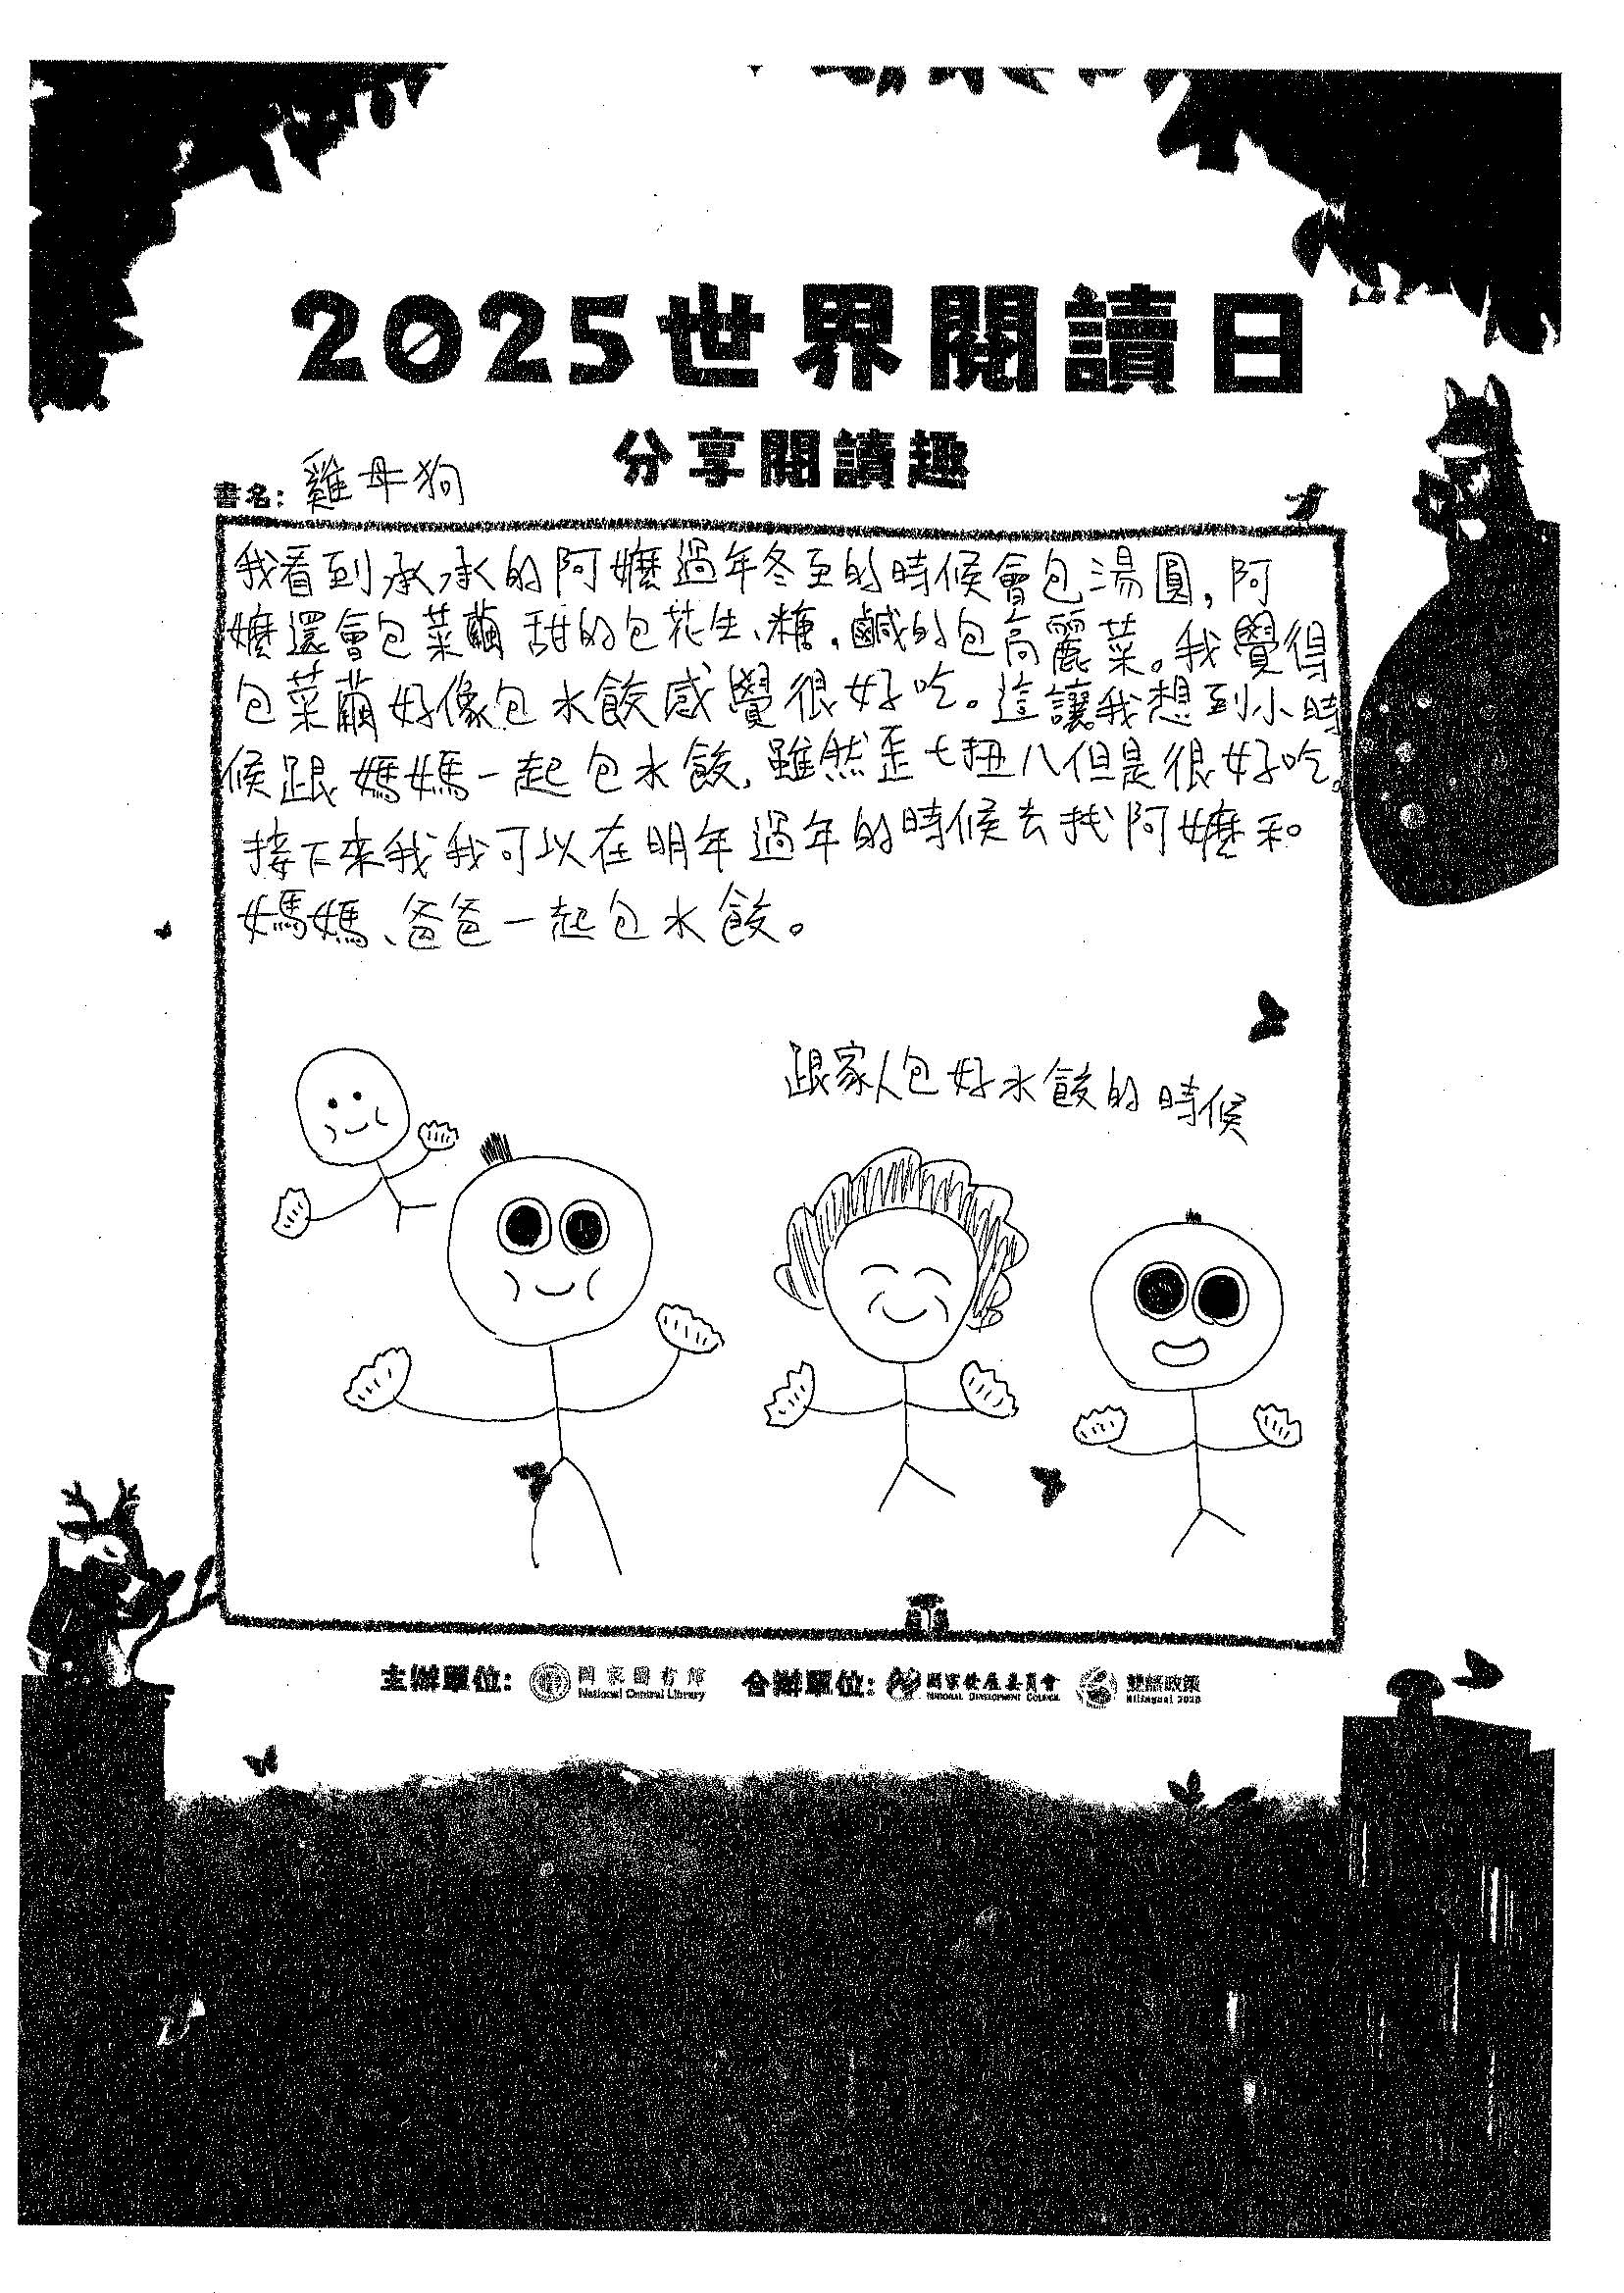 2025世界閱讀日
分享閱讀趣
書名：雞母狗
我看到承承的阿嬤過年冬至的時候會包湯圓，阿
嬤還會包菜繭甜的包花生、糖，鹹的包高麗菜。我覺得
包菜繭好像包水餃感覺很好吃。這讓我想到小時
候跟媽媽一起包水餃，雖然歪七扭八但是很好吃。
接下來我我可以在明年過年的時候去找阿嬤和
媽媽、爸爸一起包水餃。
跟家人包好水餃的時候
主辦單位：國家圖書館 National Central Library 合辦單位：國家發展委員會 NATIONAL DEVELOPMENT COUNCIL 雙語政策 Bilingual 2030